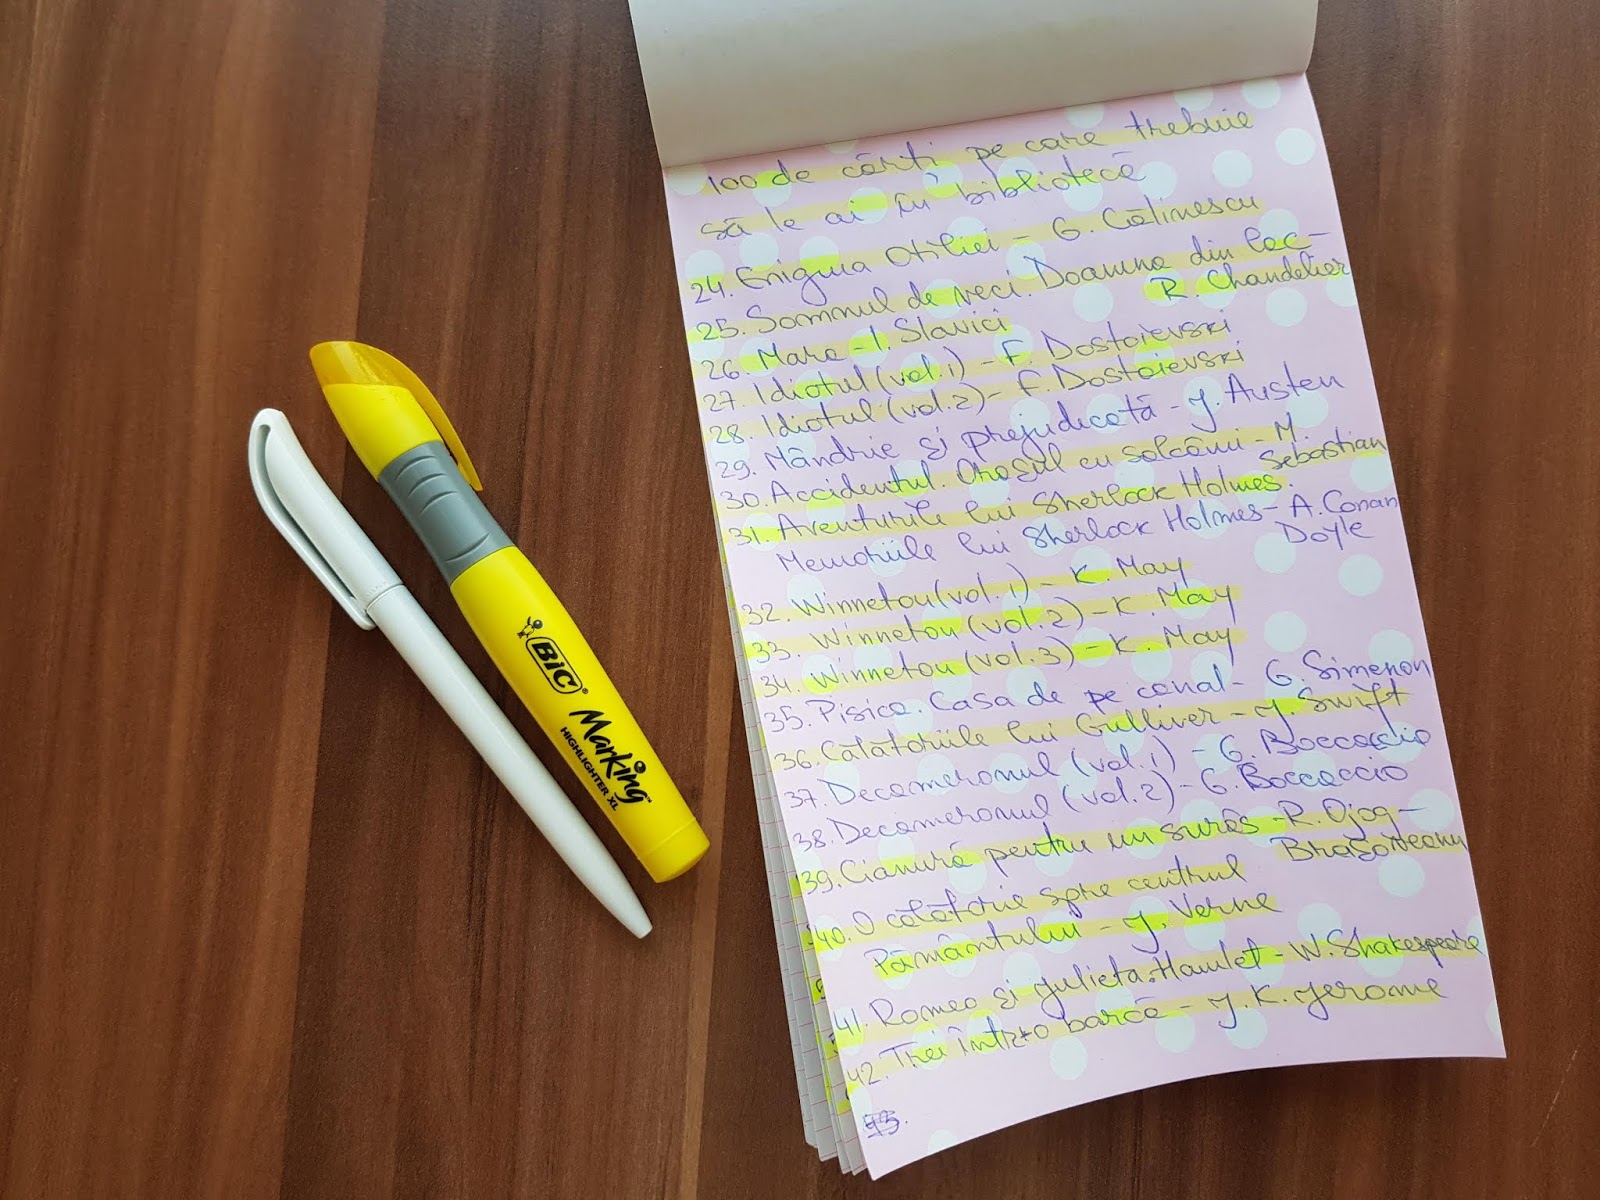 100 de cărți pe care trebuie
să le ai în bibliotecă
24. Enigma Otiliei - G. Călinescu
25. Somnul de veci. Doamna din lac -
R. Chandeler
26. Mara - I. Slavici
27. Idiotul (vol. 1) - F. Dostoievski
28. Idiotul (vol. 2) - F. Dostoievski
29. Mândrie și prejudicată - J. Austen
30. Accidentul. Orașul cu salcâmi - M.
Sebastian
31. Aventurile lui Sherlock Holmes.
Memoriile lui Sherlock Holmes - A. Conan
Doyle
32. Winnetou (vol. 1) - K. May
33. Winnetou (vol. 2) - K. May
34. Winnetou (vol. 3) - K. May
35. Pisica. Casa de pe canal - G. Simenon
36. Călătoriile lui Gulliver - J. Swift
37. Decameronul (vol. 1) - G. Boccaccio
38. Decameronul (vol. 2) - G. Boccaccio
39. Cianură pentru un surâs - R. Ojog -
Brașoveanu
40. O călătorie spre centrul
Pământului - J. Verne
41. Romeo și Julieta. Hamlet - W. Shakespeare
42. Trei într-o barcă - J. K. Jerome
BIC®
Marking™
HIGHLIGHTER XL